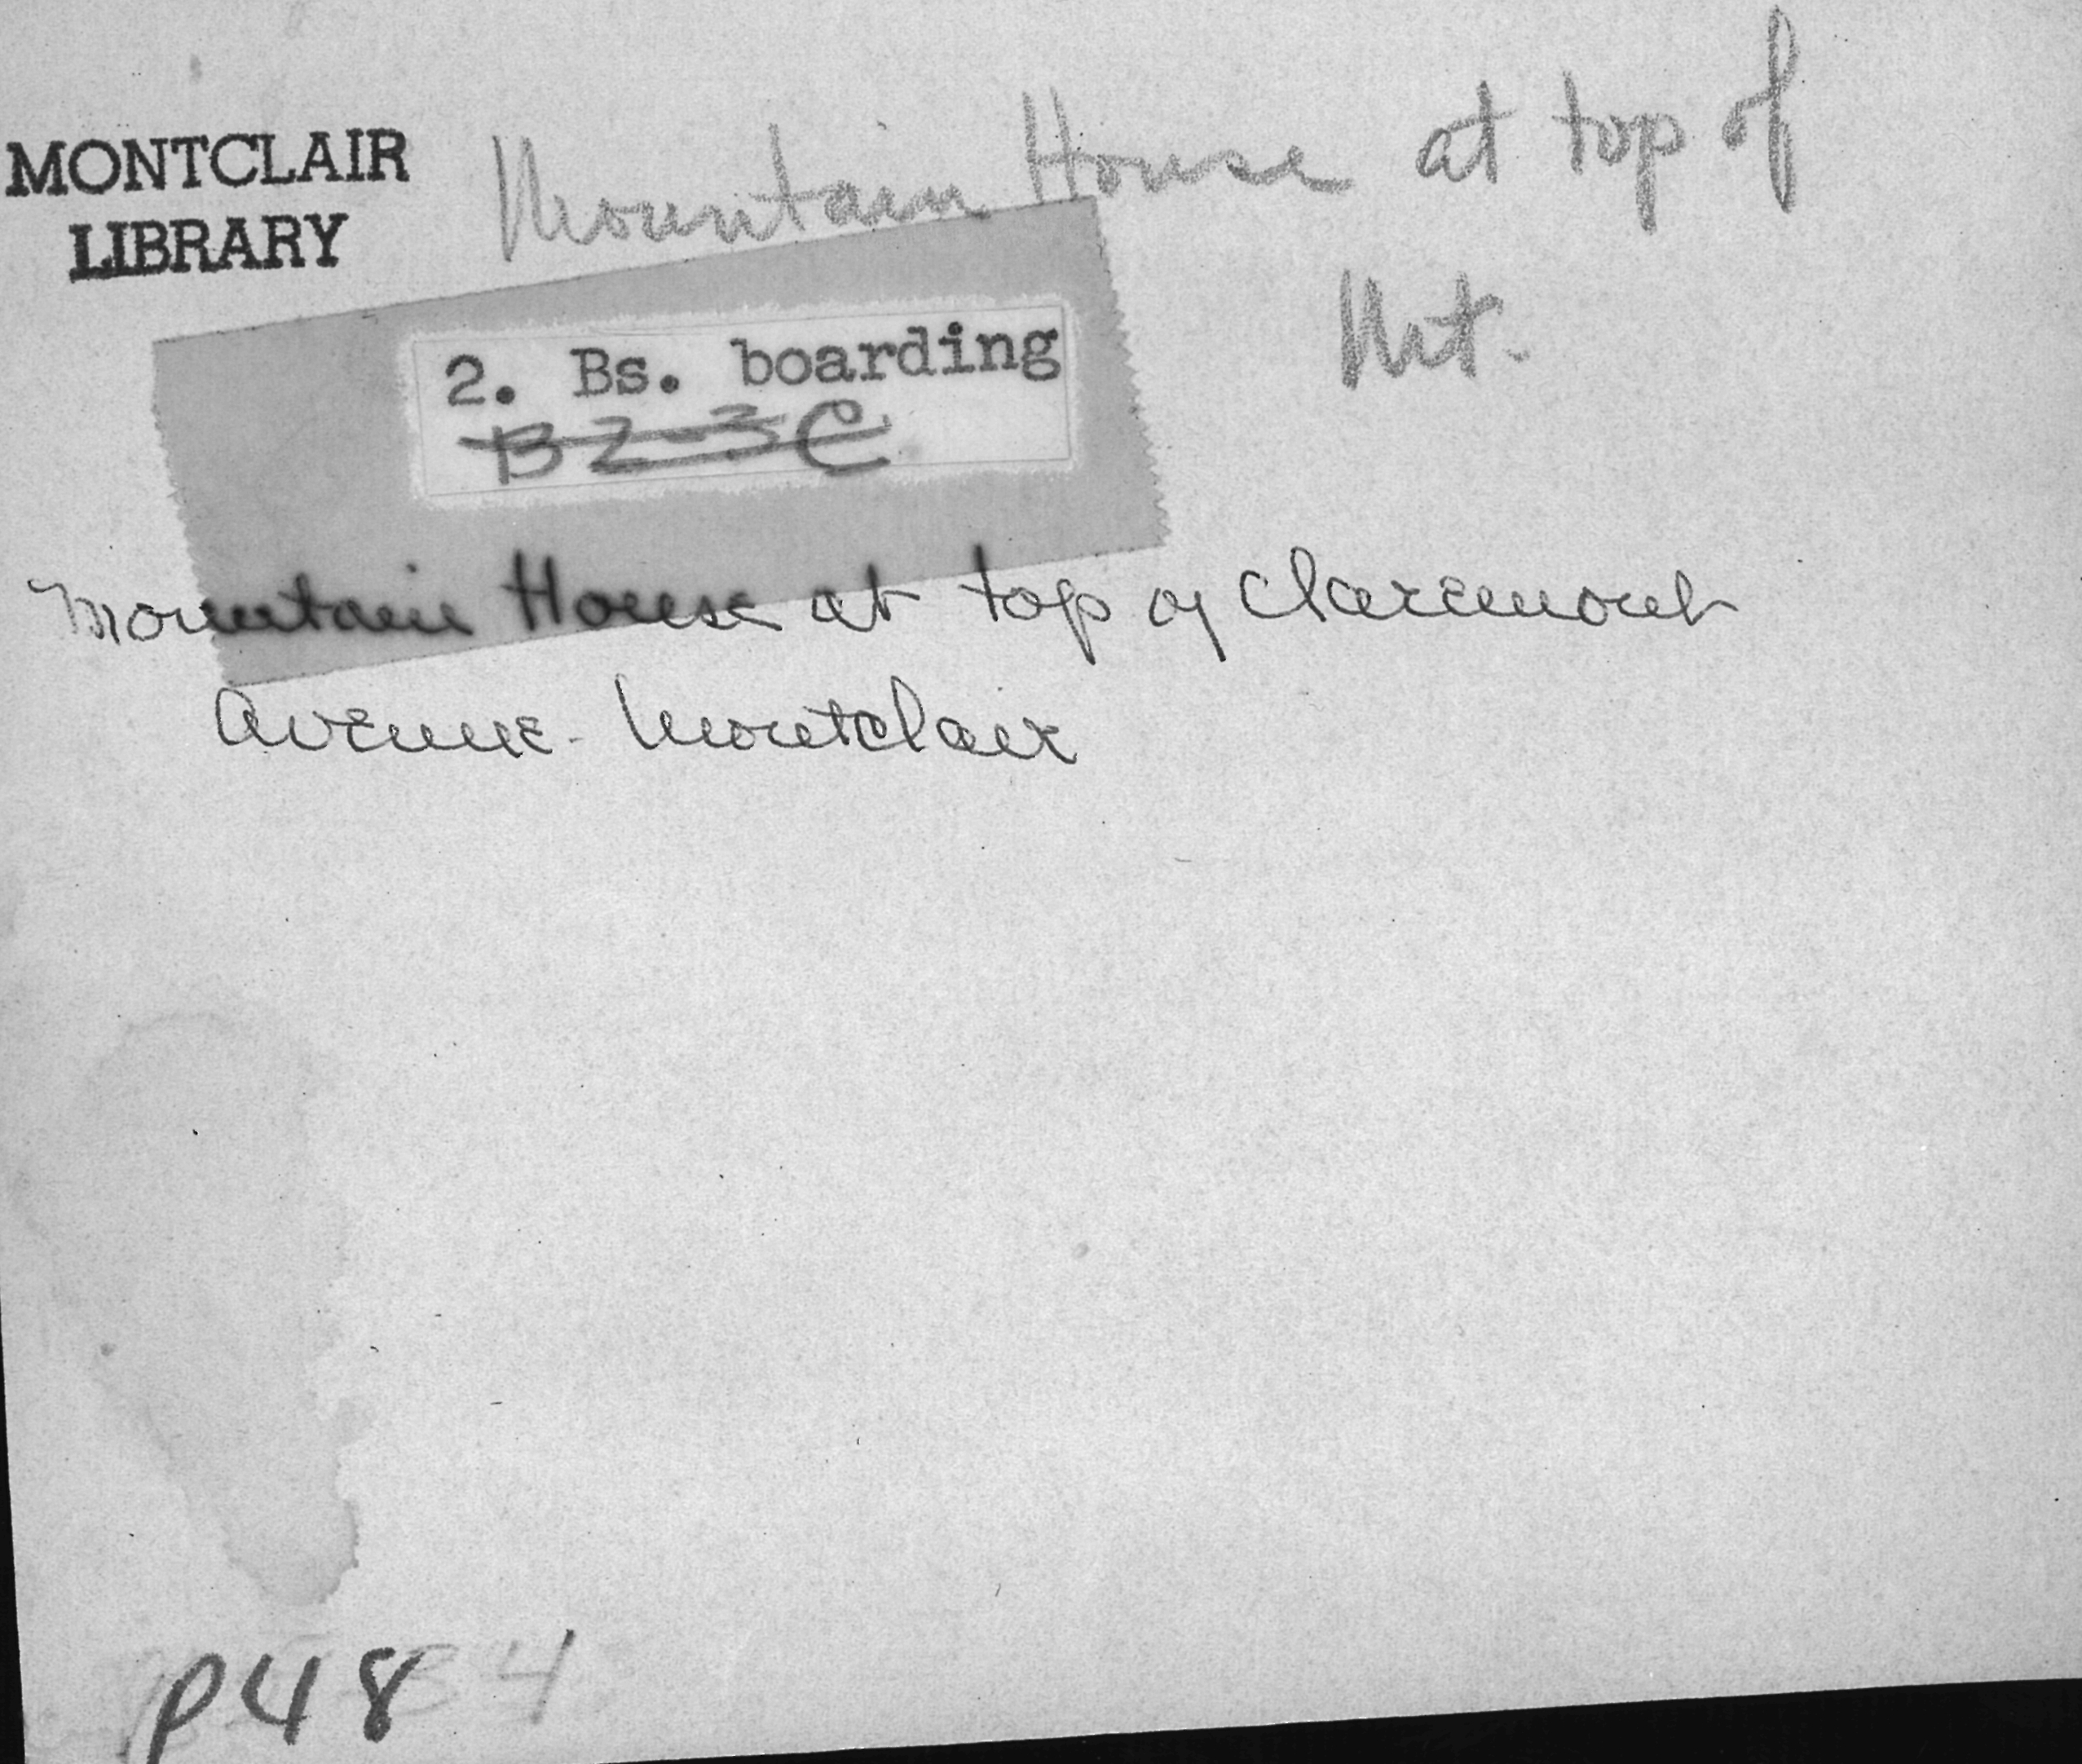 MONTCLAIR
LIBRARY
Mountain House at top of
Mt.
2. Bs. boarding
B2-3C
Mountain House at top of Claremont
Avenue - Montclair
P48